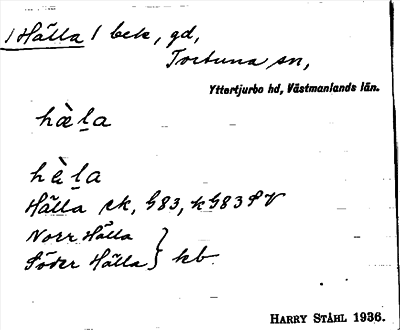 / Hälla / bek, gd,
Tortuna sn,
Yttertjurbo hd, Västmanlands län.
hæ̀ḻa
hὲḻa
Hälla ek, G83, kG83 SV
Norr Hälla
Söder Hälla } kb
HARRY STÅHL 1936.